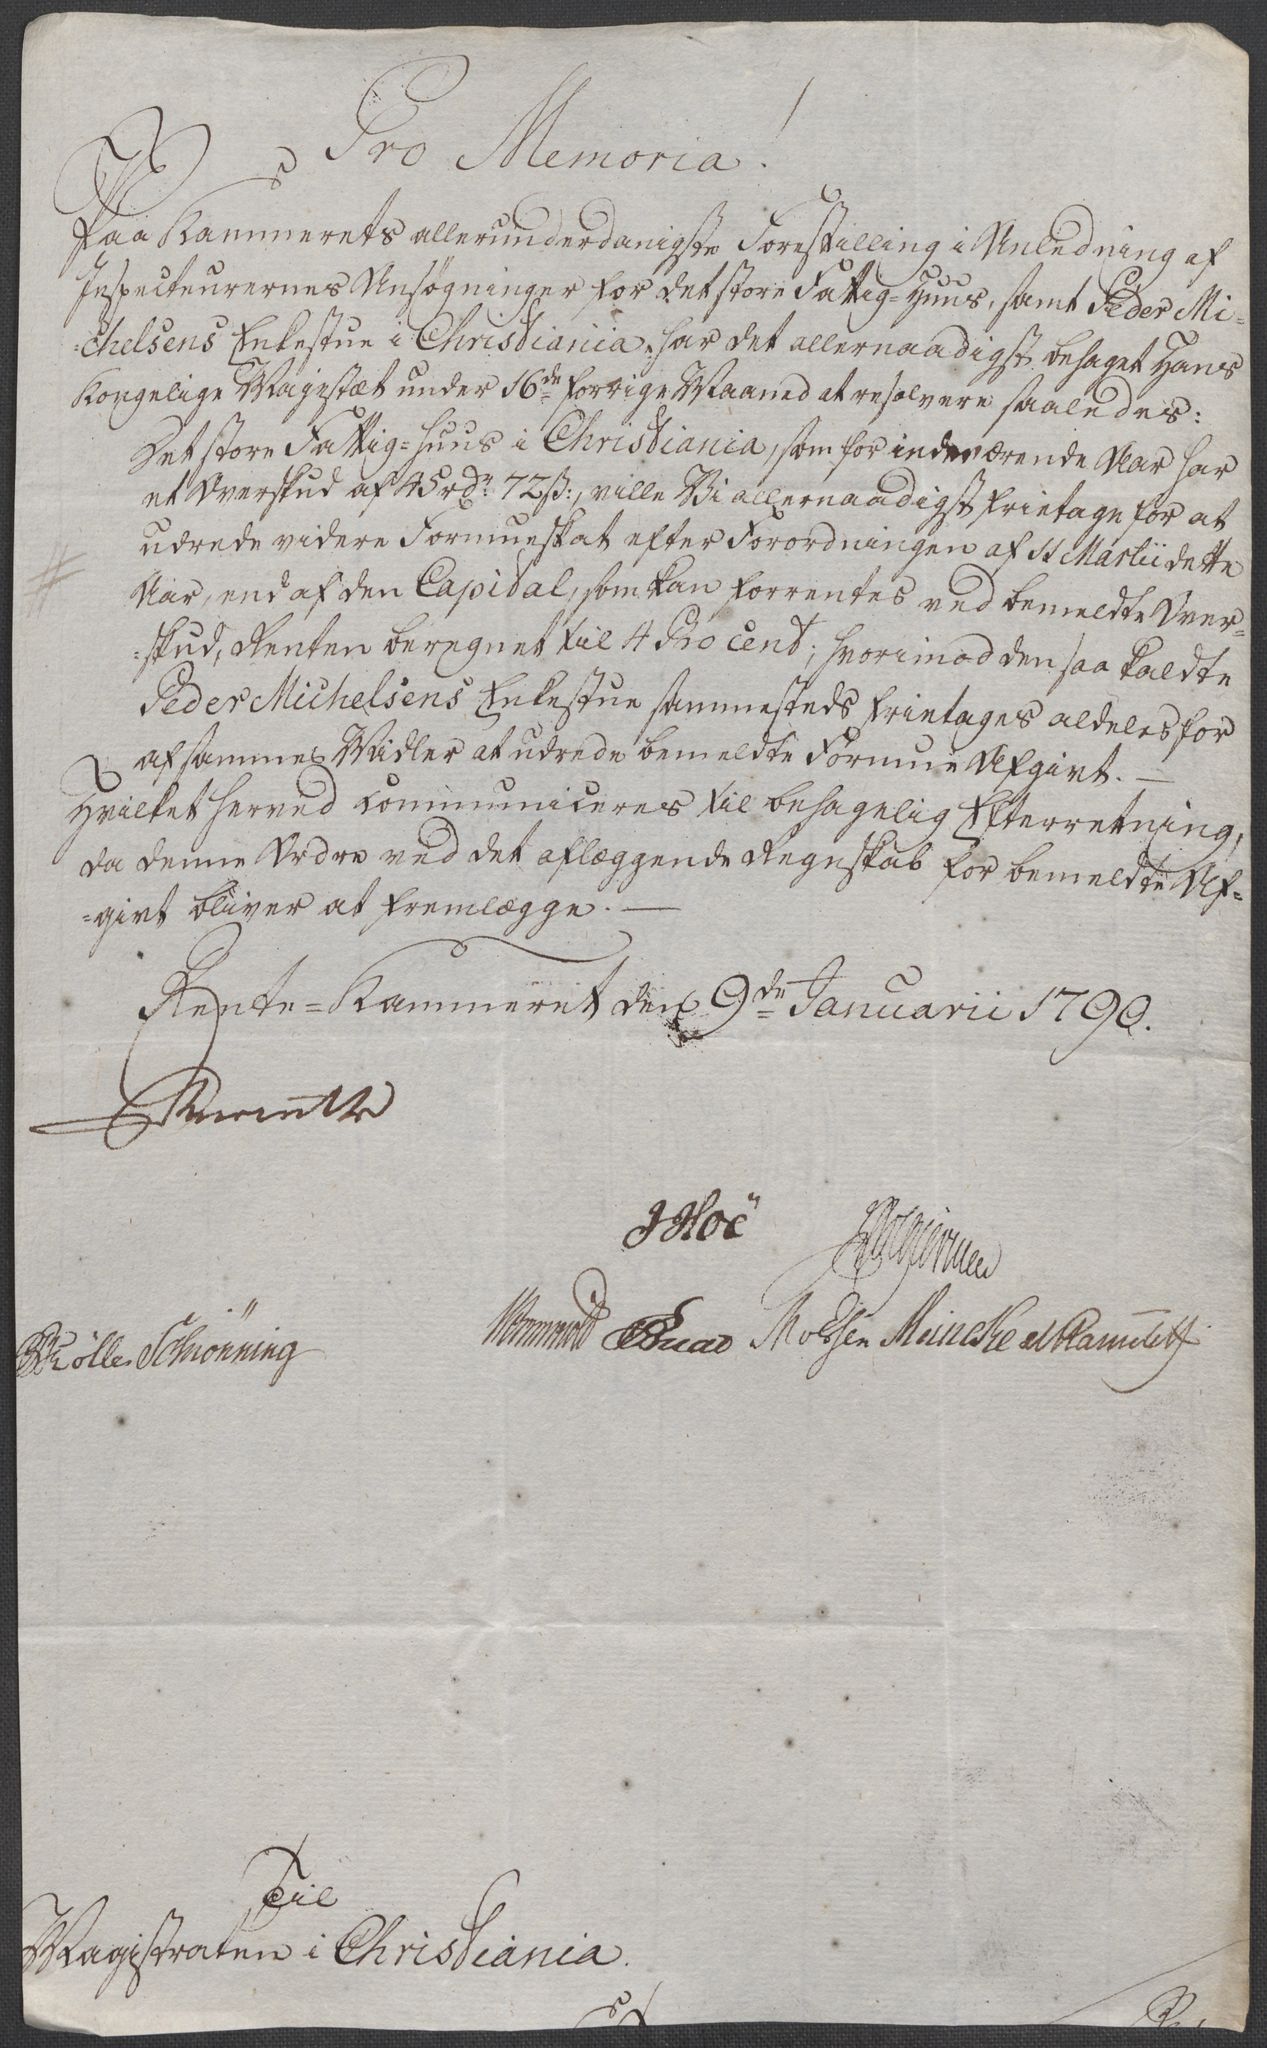 Pro Memoria!
Paa Kammerets allerunderdanigste Forestilling i Anledning af
Inspecteurernes Ansøgninger for det store Fattig=Huus, samt Peder Mi=
=chelsens Enkestue i Christiania, har det allernaadigst behaget Hans
Kongelige Majestæt under 16de forrige Maaned at resolvere saaledes:
Det store Fattig=Huus i Christiania, som for indeværende Aar har
et Overskud af 45 rdr 72 ß:, ville Vi allernaadigst fritage for at
udrede videre Formueskat efter Forordningen af 11 Martii dette
Aar, end af den Capital, som kan forrentes ved bemeldte Over=
=skud, Renten beregnet til 4 Pro Cent; hvorimod den saa kaldte
Peder Michelsens Enkestue sammesteds fritages aldeles for
af sammes Midler at udrede bemeldte Formue Afgivt. —
Hvilket herved communiceres til behagelig Efterretning,
da denne Ordre ved det aflæggende Regnskab for bemeldte Af=
=givt bliver at fremlægge. —
Rente=Kammeret den 9de Januarii 1790.
JHoë
Schiønning
Meincke
Til
Magistraten i Christiania.